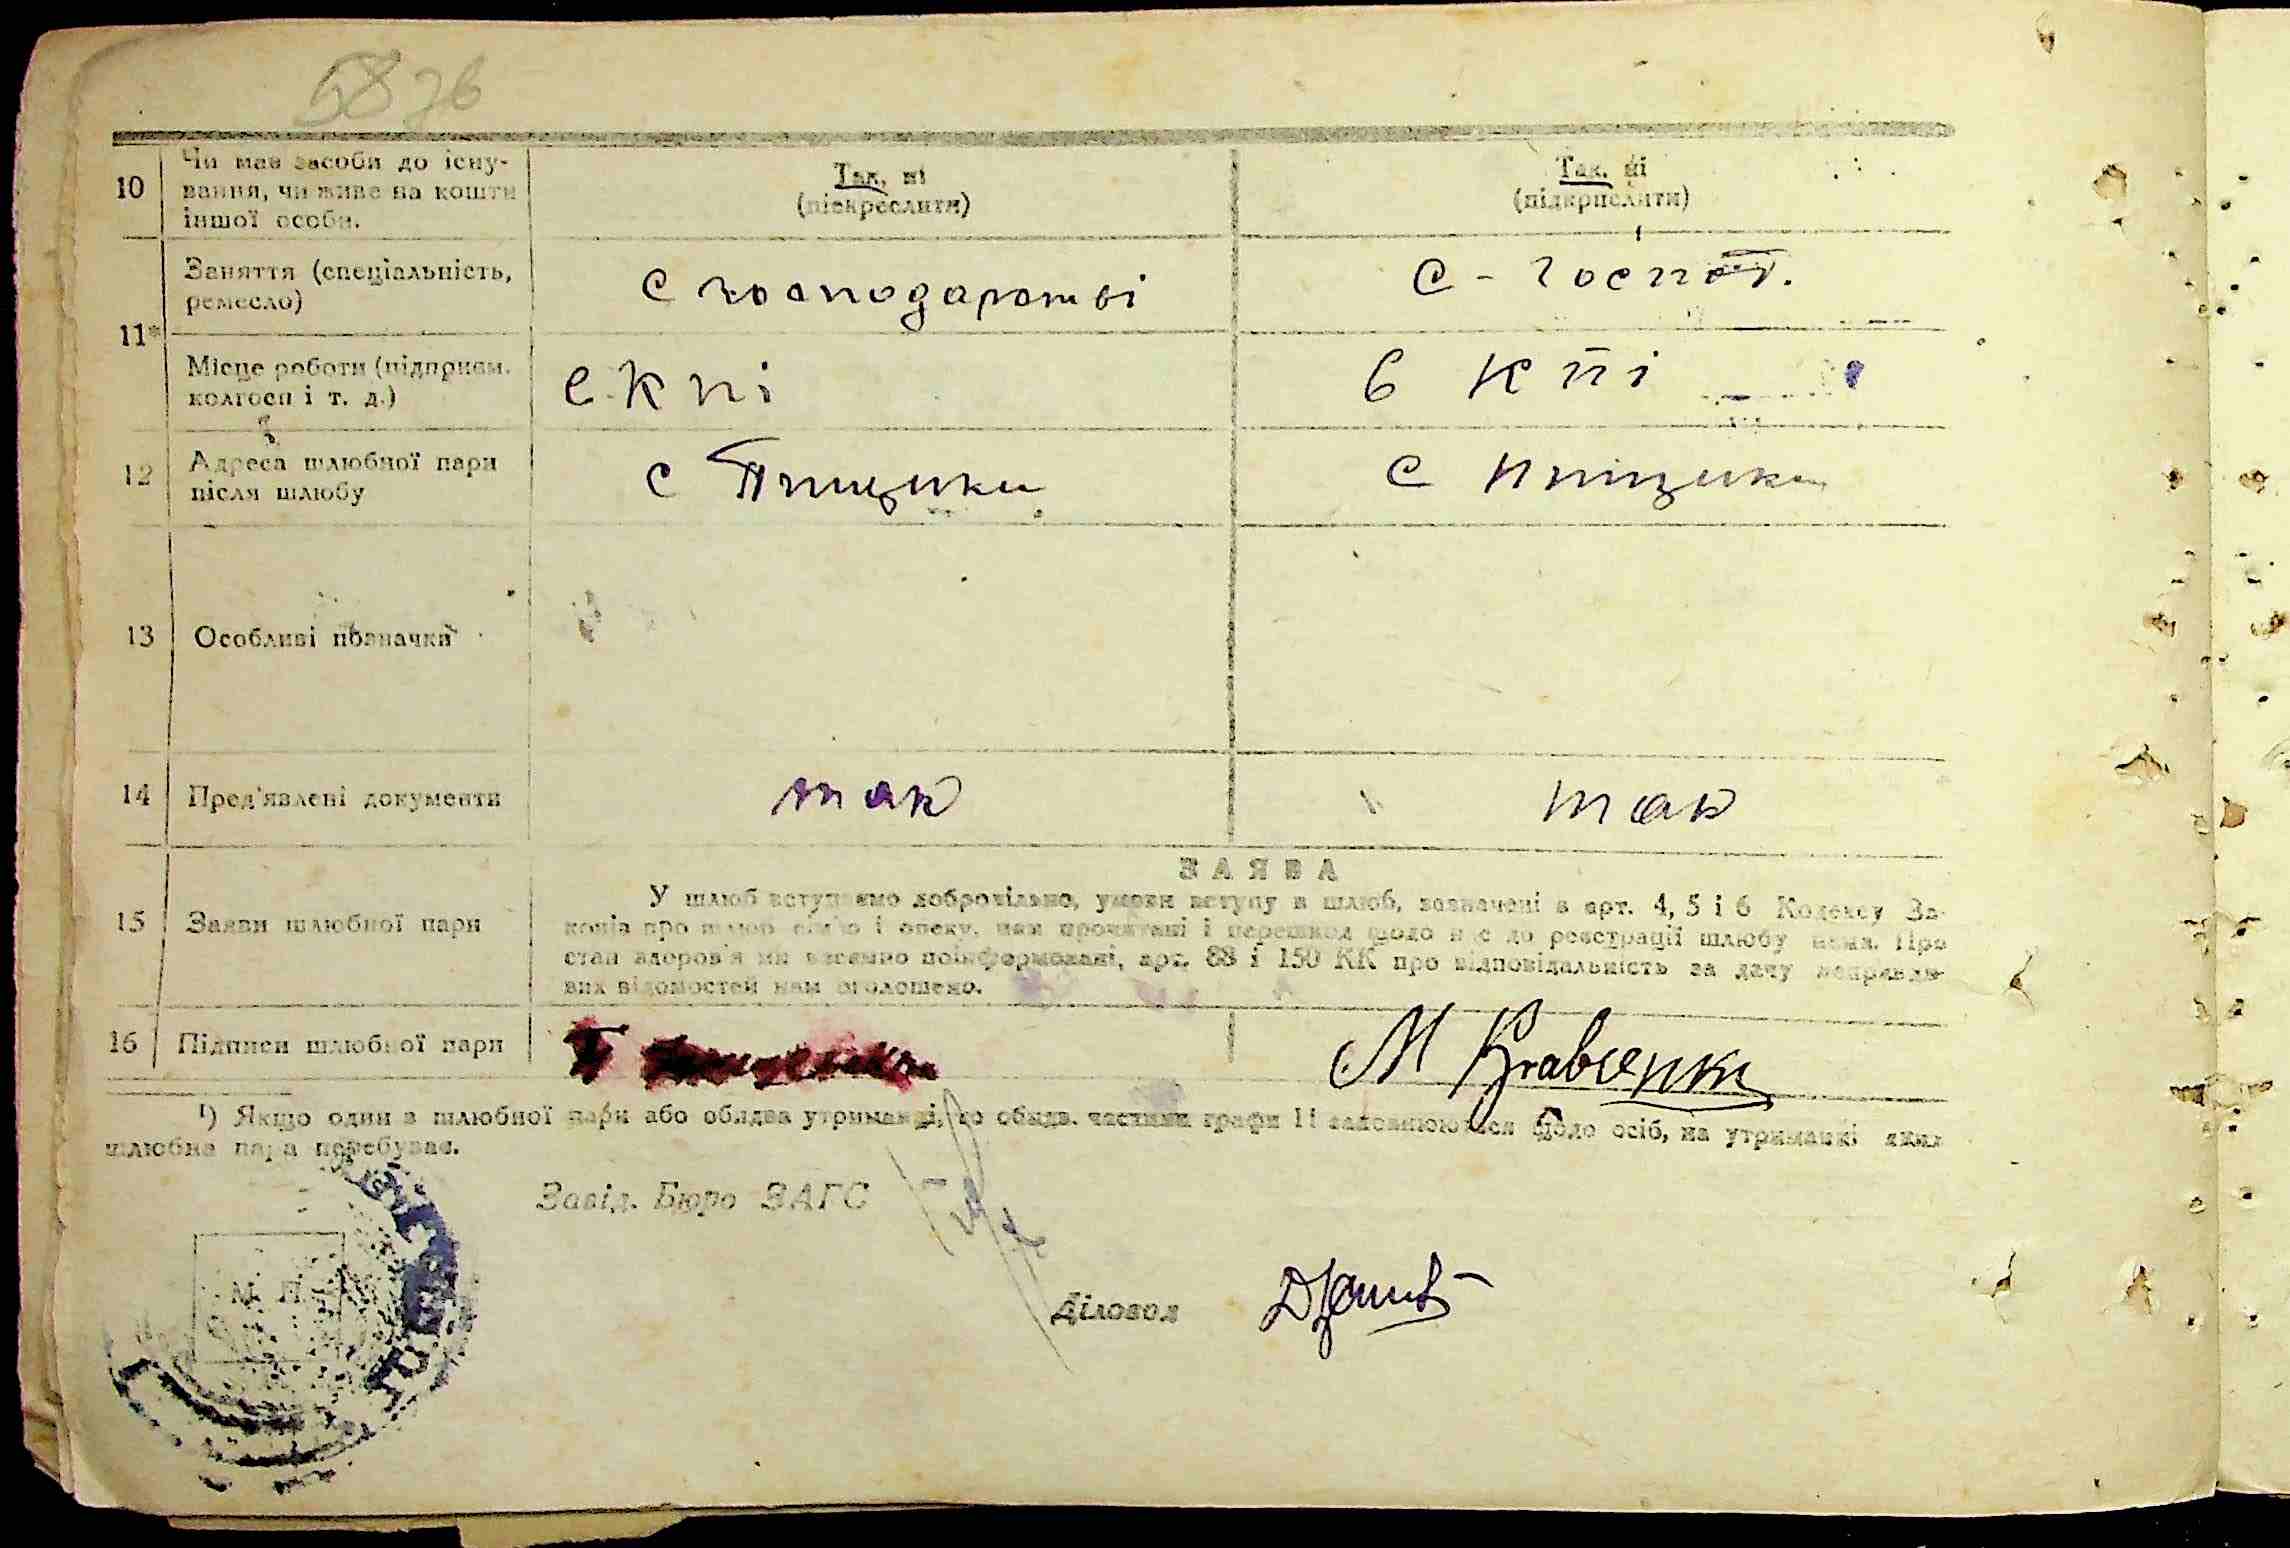 58 зв
10 Чи має засоби до існу-
вання, чи живе на кошти
іншої особи.
Так, ні
(підкреслити)
Так, ні
(підкрислити)
11* Заняття (спеціальність,
ремесло)
С господарстві
С - господ.
Місце роботи (підприєм.
колгосп і т. д.)
в Кпі
12 Адреса шлюбної пари
після шлюбу
с Пищики
с Пищики
13 Особливі позначки
14 Пред'явлені документи
так
так
ЗАЯВА
15 Заяви шлюбної пари
У шлюб вступаємо добровільно, умови вступу в шлюб, зазначені в арт. 4, 5 і 6 Кодексу За-
конів про шлюб сім'ю і опеку, нам прочитані і перешкод щодо нас до реєстрації шлюбу нема. Про
стан здоров'я ми взаємно поінформовані, арт. 88 і 150 КК про відповідальність за дачу неправди-
вих відомостей нам оголошено.
16 Підписи шлюбної пари
М Кравченко
¹) Якщо один з шлюбної пари або обидва утриманці, то обидв. частини графи 11 заповнюються щодо осіб, на утриманні яких
шлюбна пара перебуває.
Завід. Бюро ЗАГС
М. П.
Діловод